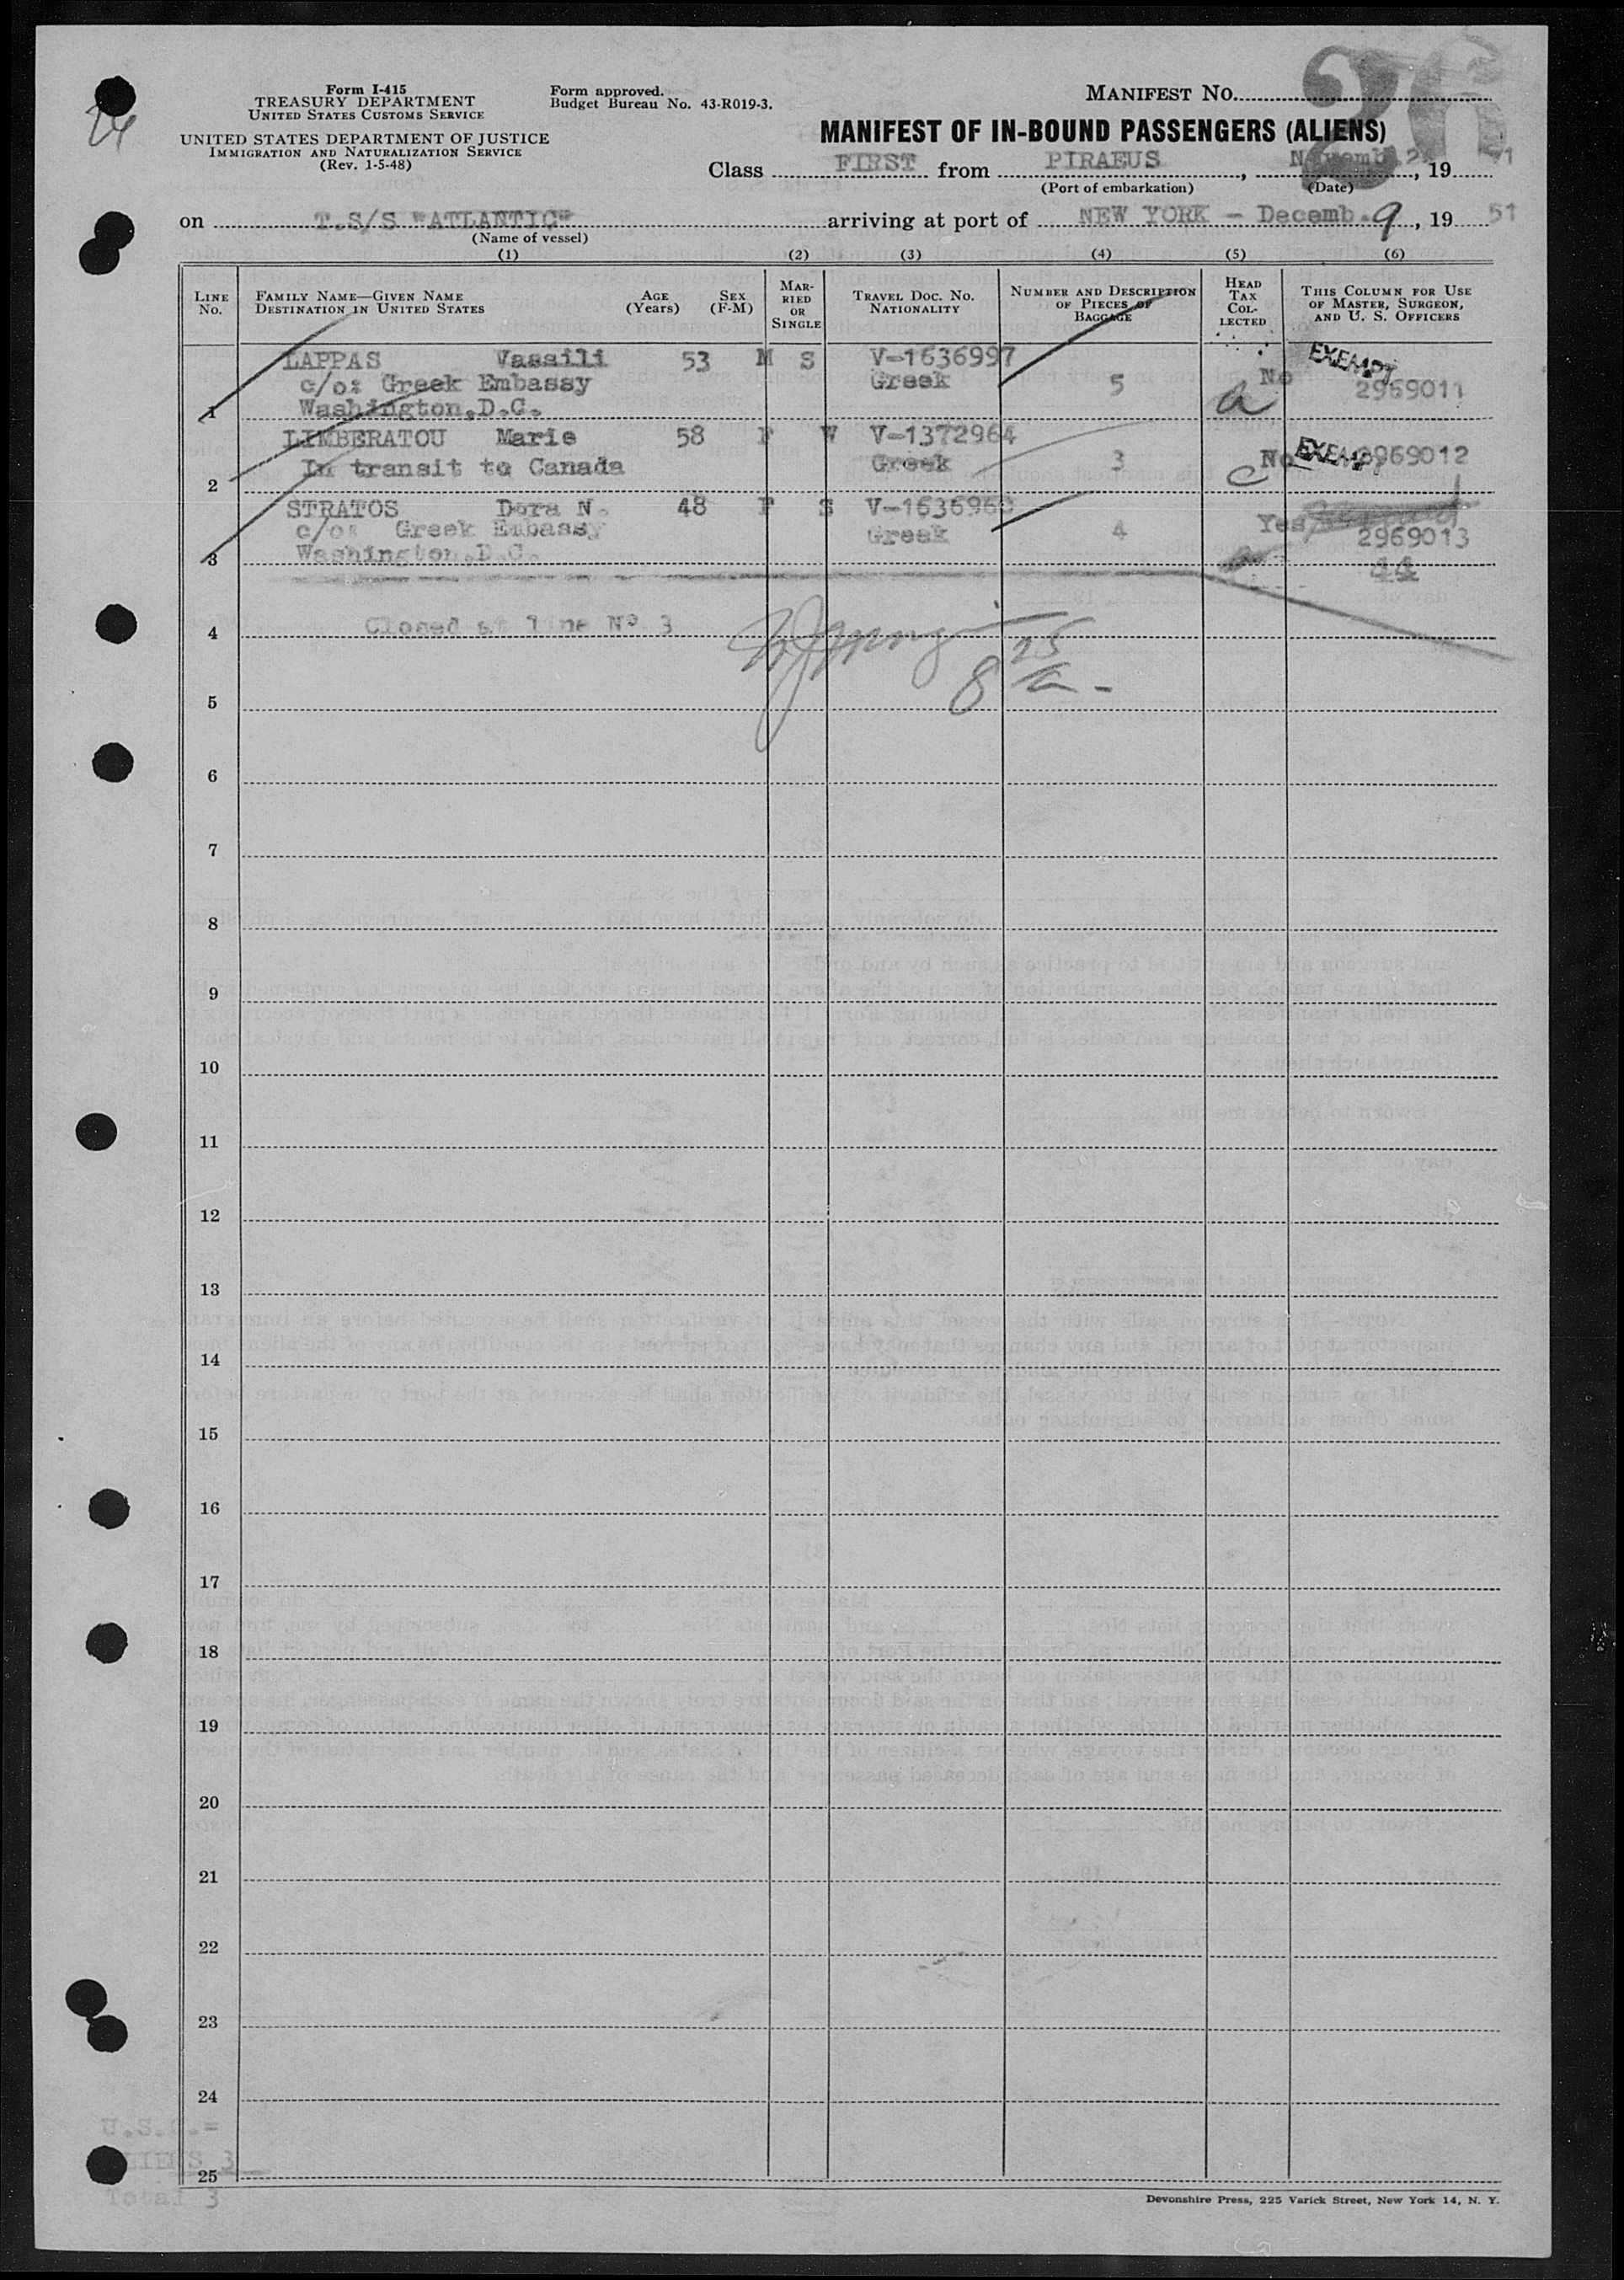 Form I-415
TREASURY DEPARTMENT
UNITED STATES CUSTOMS SERVICE
UNITED STATES DEPARTMENT OF JUSTICE
IMMIGRATION AND NATURALIZATION SERVICE
(Rev. 1-5-48)
Form approved.
Budget Bureau No. 43-R019-3.
MANIFEST NO.
MANIFEST OF IN-BOUND PASSENGERS (ALIENS)
Class FIRST from PIRAEUS, , 19
(Port of embarkation) (Date)
on T.S/S "ATLANTIC" arriving at port of NEW YORK - Decemb. 9, 19 51
(Name of vessel)
(1) (2) (3) (4) (5) (6)
LINE No. FAMILY NAME—GIVEN NAME DESTINATION IN UNITED STATES AGE (Years) SEX (F-M) MARRIED OR SINGLE TRAVEL DOC. NO. NATIONALITY NUMBER AND DESCRIPTION OF PIECES OF BAGGAGE HEAD TAX COLLECTED THIS COLUMN FOR USE OF MASTER, SURGEON, AND U. S. OFFICERS
LAPPAS Vassili 53 M S V-1636997 EXEMPT
c/o: Greek Embassy Greek 5 No 2969011
1 Washington,D.C. a
LIMBERATOU Marie 58 F W V-1372964
In transit to Canada Greek 3 No EXEMPT 2969012
2 C
STRATOS Dora N. 48 F S
c/o: Greek Embassy Greek 4 Yes 2969013
3 Washington,D.C. 44
4 Closed at line Nº 3
8 25
5
6
7
8
9
10
11
12
13
14
15
16
17
18
19
20
21
22
23
24
25
ALIENS 3
Total 3
Devonshire Press, 225 Varick Street, New York 14, N. Y.